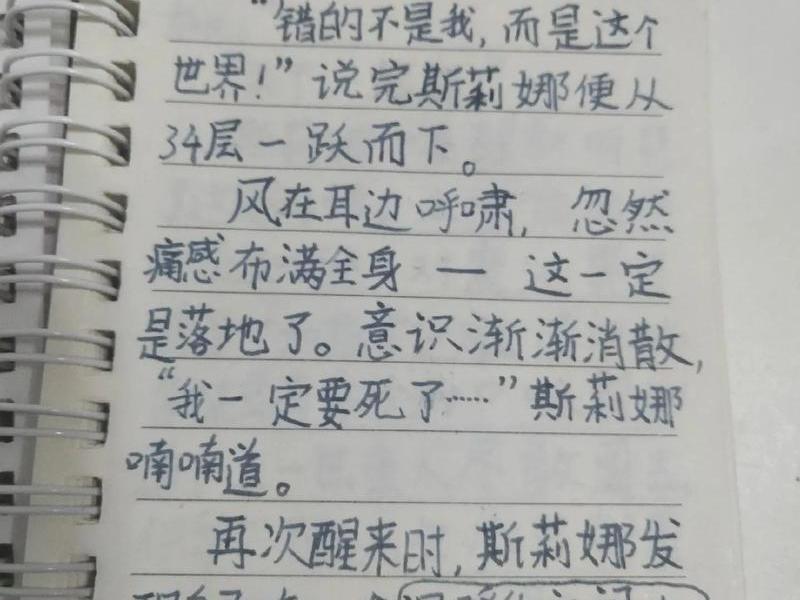 “错的不是我，而是这个
世界！”说完斯莉娜便从
34层一跃而下。
风在耳边呼啸，忽然
痛感布满全身 — 这一定
是落地了。意识渐渐消散，
“我一定要死了……”斯莉娜
喃喃道。
再次醒来时，斯莉娜发